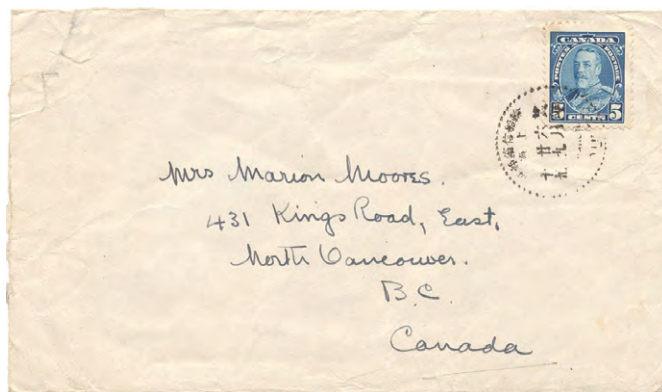 CANADA
POSTES POSTAGE
5 CENTS 5
Mrs Marion Moores.
431 Kings Road, East,
North Vancouver.
B.C.
Canada